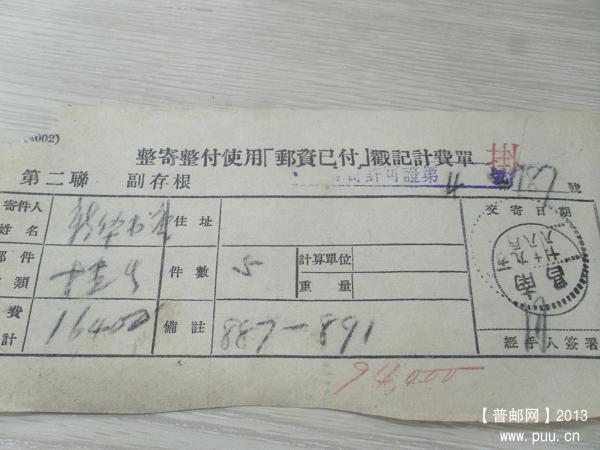 4002)
整寄整付使用「郵資已付」戳記計費單 掛
第二聯 副存根 許可證第 號
寄件人姓名 新华书店 住址 交寄日期
郵件類 件數 5 計算單位 重量
費計 16400 備註 887-891 經手人簽署
南昌
94,000
【普邮网】2013
www.puu.cn